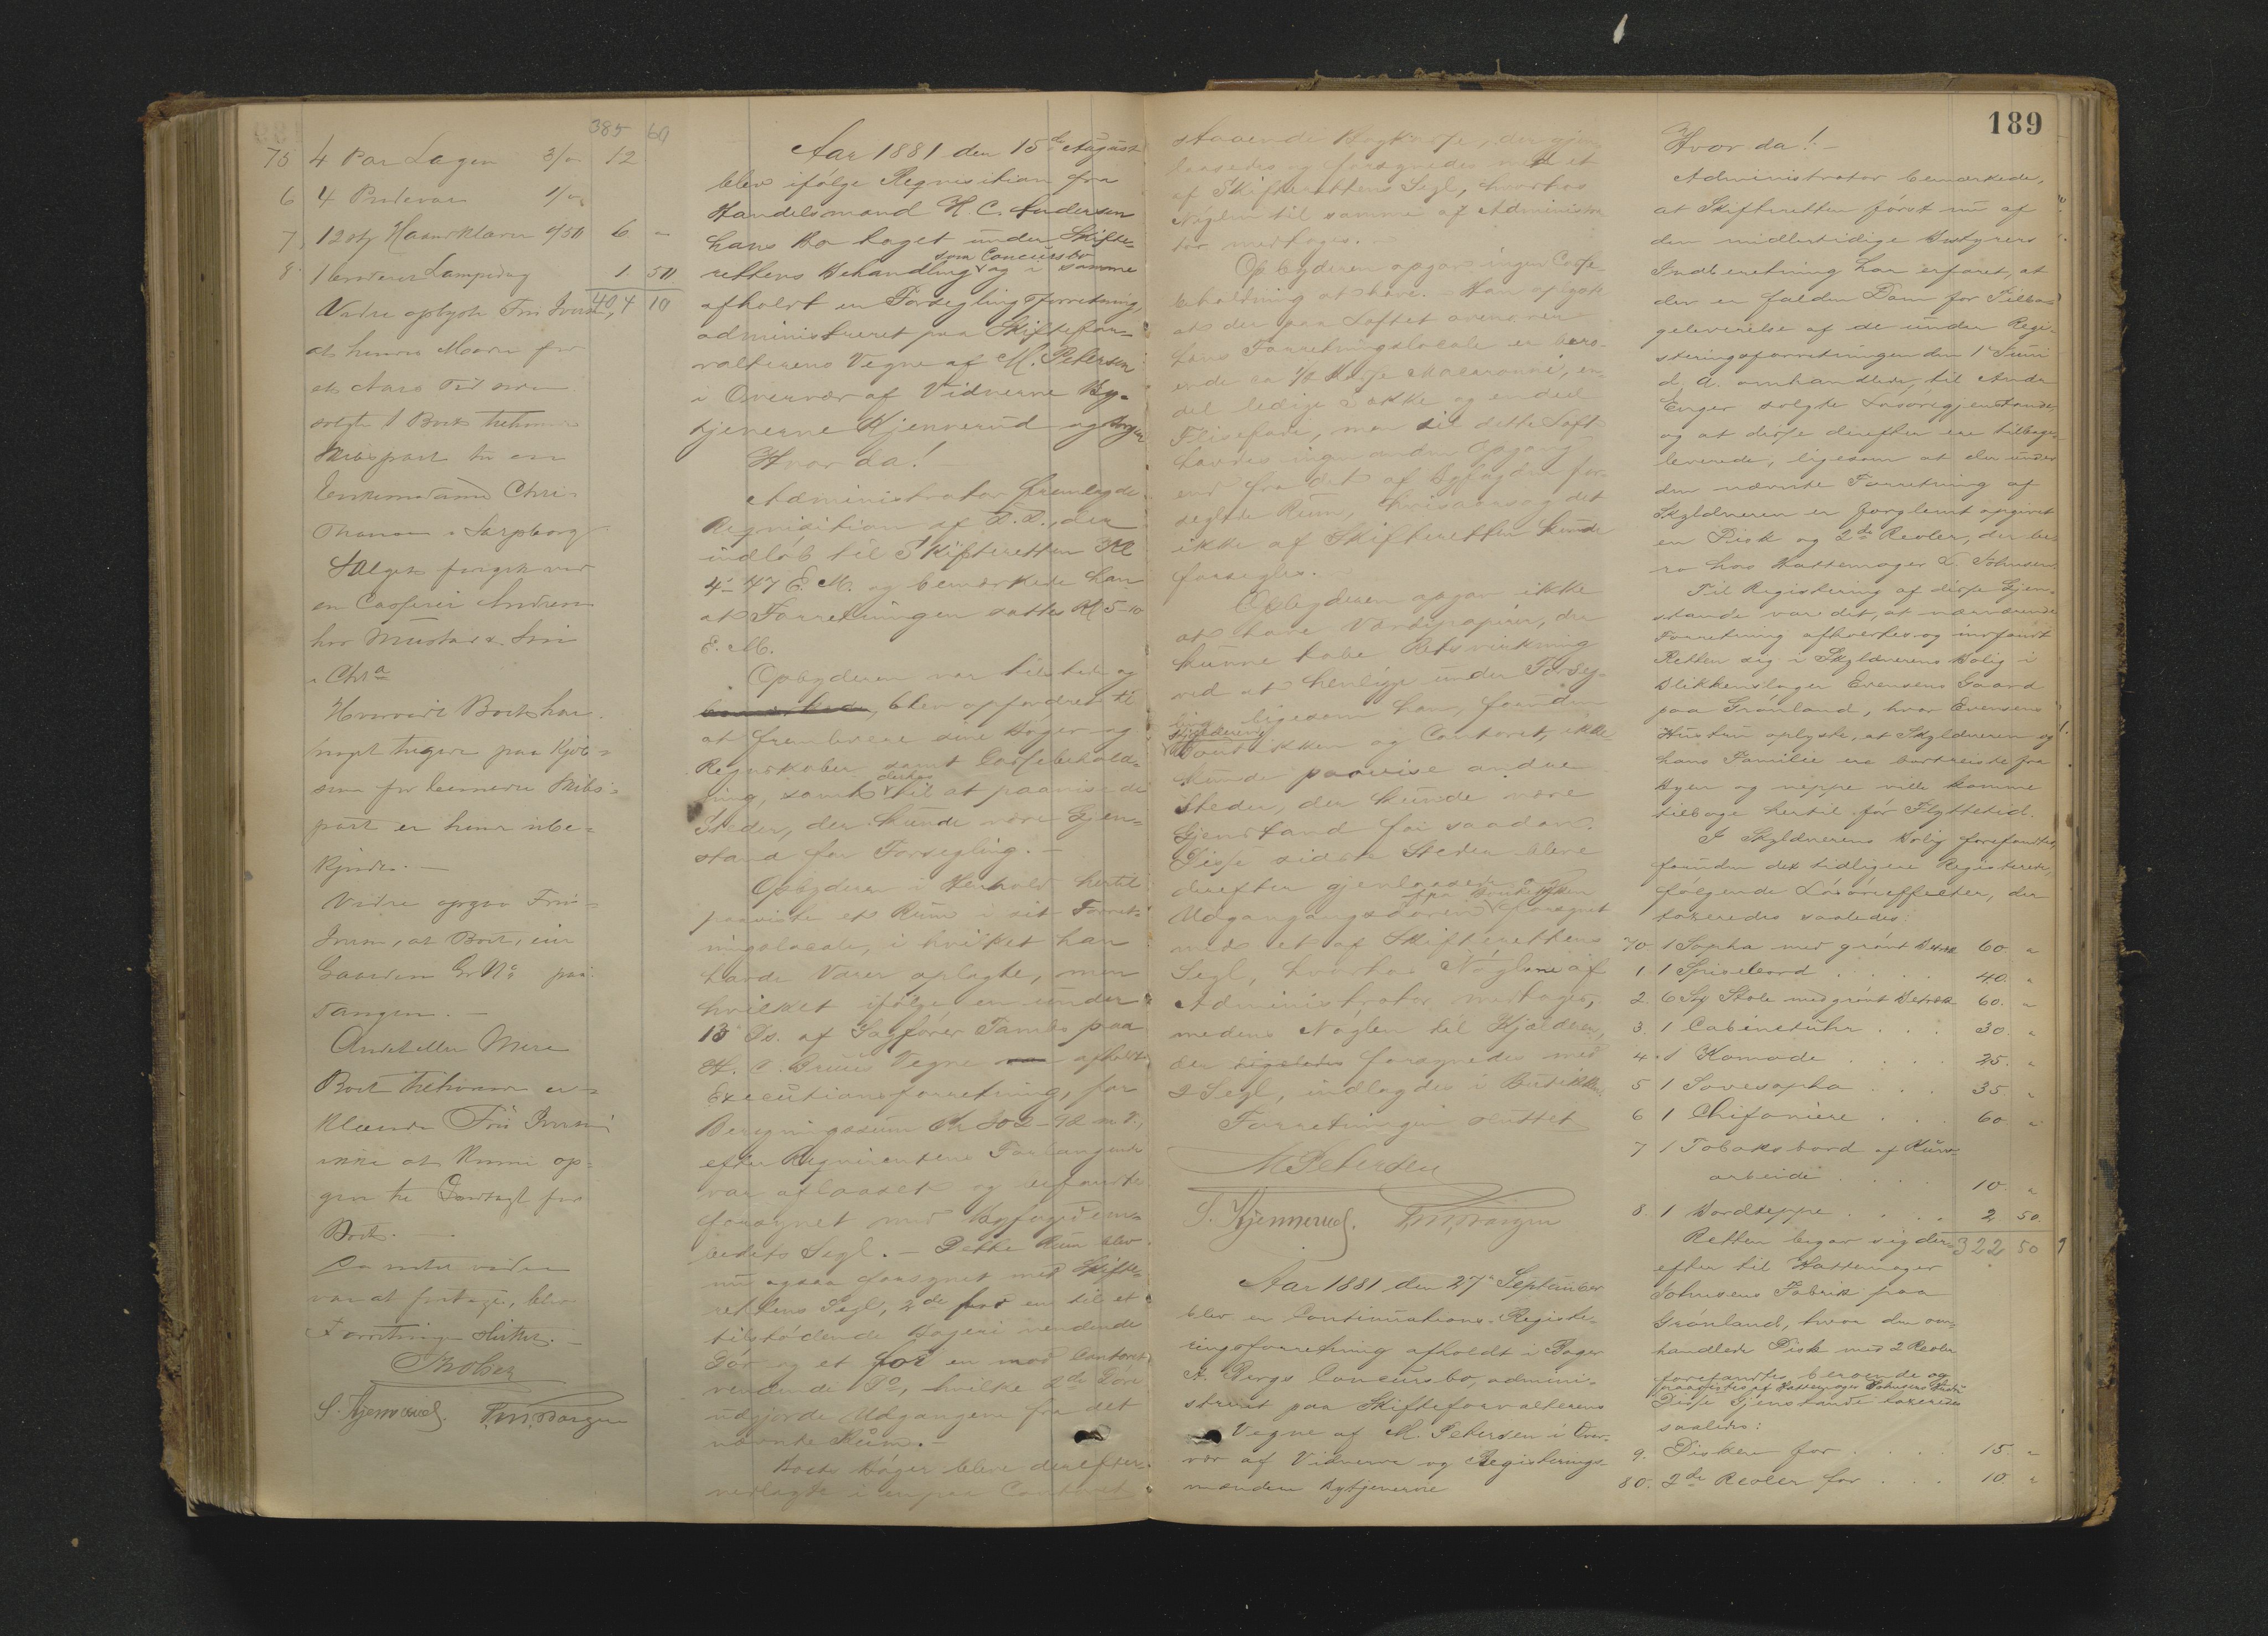 385 60
75 4 Par Lagen 3/00 12
6 4 Pudevar 1/00
7. 12 st Haandklær 0/50 6 "
8. 1 broderet Lampedug 1 50
404 10
Videre oplyste Fru Iversen,
at hendes Mand for
et Aars Tid siden
solgte 1 Boet tilhørende
Skibspart til en
Enkemadame Chri-
i Sarpsborg
Salget foregik ved
en Casserer Andresen
hos Mustad & Søn
i Chra
Hvorvidt Boet har
noget tilgode paa Kjøbe-
sum for bemeldte Skibs-
part er hende ube-
kjendt. —
Videre opgav Fru
Iversen, at Boet, eier
Gaarden Gr No paa
Tangen. —
Andet eller Mere
Boet tilhørende er-
klærede Fru Iversen
ikke at kunne op-
give til Indtægt for
Boet. —
Da intet videre
var at foretage, blev
Forretningen sluttet. —
S. Kjennerud.
Aar 1881 den 15de August
blev ifølge Reqvisition fra
Handelsmand H. C. Andersen
hans Bo taget under Skifte-
som Concursbo
rettens Behandling og i samme
afholdt en Forseglingsforretning,
administreret paa Skiftefor-
valterens Vegne af M. Petersen
i Overvær af Vidnerne By-
tjenerne Kjennerud og Borgen
Hvor da! —
Administrator fremlagde
Reqvisition af D. D., der
indløb til Skifteretten Kl
4-47 E. M. og bemærkede han
at Forretningen sattes Kl 5-10
E. M.
Opbyderen var tilstede og
blev opfordret til
at frembære sine Bøger og
Regnskaber samt Cassebehold-
derhos
ning, samt til at paavise de
Steder, der kunde være Gjen-
stand for Forsegling. —
Opbyderen i Henhold hertil
paaviste et Rum i sit Forret-
ningslocale, i hvilket han
havde Varer oplagte, men
hvilket ifølge en under
13 Ds. af Sagfører Tambs paa
H. C. Vegne afholdt
Executionsforretning, for
Beregningssum Kr 802-92 m. V.,
efter Reqvirentens Forlangende
var aflaaset og
forsynet med Byfogedem-
bedets Segl. — Dette Rum blev
nu ogsaa forsynet med Skifte-
rettens Segl, 2de for en til et
tilstødende Bageri vendende
Dør og et for en mod Contoret
vendende Do, hvilke 2de Døre
udgjorde Udgangene fra det
nævnte Rum. —
Boets Bøger bleve derefter
nedlagte i en paa Contoret
189
staaende Bogkasse, der gjen-
laasedes og forsegledes med et
af Skifterettens Segl, hvorhos
Nøglen til samme af Administra-
tor medtoges. —
Opbyderen opgav ingen Casse-
beholdning at have. — Han oplyste
at der paa Loftet ovenover
hans Forretningslocale er bero-
ende ca 1/2 Kasse Macaroni, en-
del ledige Sække og endeel
men til dette Loft
havdes ingen anden Opgang
end fra det af Byfogden for-
seglede Rum, hvisaarsag det
ikke af Skifteretten kunde
forsegles.
Opbyderen opgav ikke
at have Værdipapirer, der
kunne tabe Retsvirkning
ved at henligge under Forseg-
ling, ligesom han, foruden
Butikken og Contoret, ikke
kunde paavise andre
Steder, der kunde være
Gjenstand for saadan.
Disse sidste Steder bleve
derefter gjenlaasede og
Udgangangsdøren forsynet
med et af Skifterettens
Segl, hvorhos Nøglene af
Administrator medtoges,
medens Nøglen til Kjælderen,
der forsynedes med
2 Segl, indlagdes i Butikken.
Forretningen sluttet
M Petersen
S. Kjennerud.
Aar 1881 den 27de September
blev en Continuations-Registe-
ringsforretning afholdt i Bager
A. Bergs Concursbo, admini-
streret paa Skifteforvalterens
Vegne af M. Petersen i Over-
vær af Vidnerne og Registerings-
mændene Bytjenerne
Hvor da! —
Administrator bemærkede,
at Skifteretten først nu af
den midlertidige Bestyrers
Indberetning har erfaret, at
der er falden Dom for Tilba-
geleverelse af de under Regi-
streringsforretningen den 1ste Juni
d. A. omhandlede, til Andr
Enger solgte Løsøregjenstande
og at disse derefter ere tilbage-
leverede, ligesom at der under
den nævnte Forretning af
Skyldneren er forglemt opgivet
en Disk og 2de Reoler, der be-
ro hos Hattemager L. Johnsen.
Til Registering af disse Gjen-
stande var det, at nærværende
Forretning afholdtes og indfandt
Retten sig i Skyldnerens Bolig i
Blikkenslager Evensens Gaard
paa Grønland, hvor Evensens
Hustru oplyste, at Skyldneren og
hans Familie ere bortreiste fra
Byen og neppe ville komme
tilbage hertil før Flyttetid.
I Skyldnerens Bolig forefandtes,
foruden det tidligere Registerede,
følgende Løsøreffecter, der
taxeredes saaledes:
70. 1 Sopha med grønt Betræk 60. "
1 1 Spisebord . . . . 40. "
2. 6 St Stole med grønt Betræk 60. "
3. 1 Cabinetuhr . . . 30. "
4. 1 Komode . . . . 25. "
5 1 Sovesopha . . . 35. "
6 1 Chifoniere . . . 60. "
7 1 Tobaksbord af Kurv-
arbeide . . . . 10. "
8. 1 Bordteppe . . . . 2 50.
322 50
Retten begav sig der-
efter til Hattemager
Johnsens Fabrik paa
Grønland, hvor den om-
handlede Disk med 2 Reoler
forefandtes beroende og
paavistes af Hattemager Johnsens Hustru
Disse Gjenstande taxeredes
saaledes:
9. Disken for . . . . 15. "
80. 2de Reoler for . . . 10. "